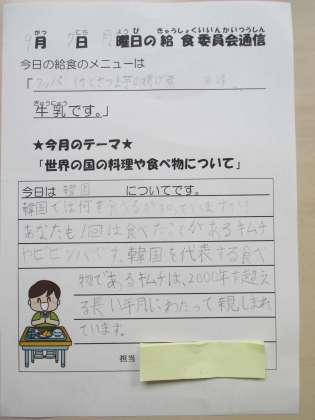 9月7日月曜日の給食委員会通信
今日の給食のメニューは
牛乳です。」
★今月のテーマ★
「世界の国の料理や食べ物について」
今日は韓国についてです。
韓国では何を食べるか知っていますか?
あなたも1回は食べたことがあるキムチ
やビビンバです。韓国を代表する食べ
物であるキムチは、2000年を超え
る長い年月にわたって親しまれ
ています。
担当